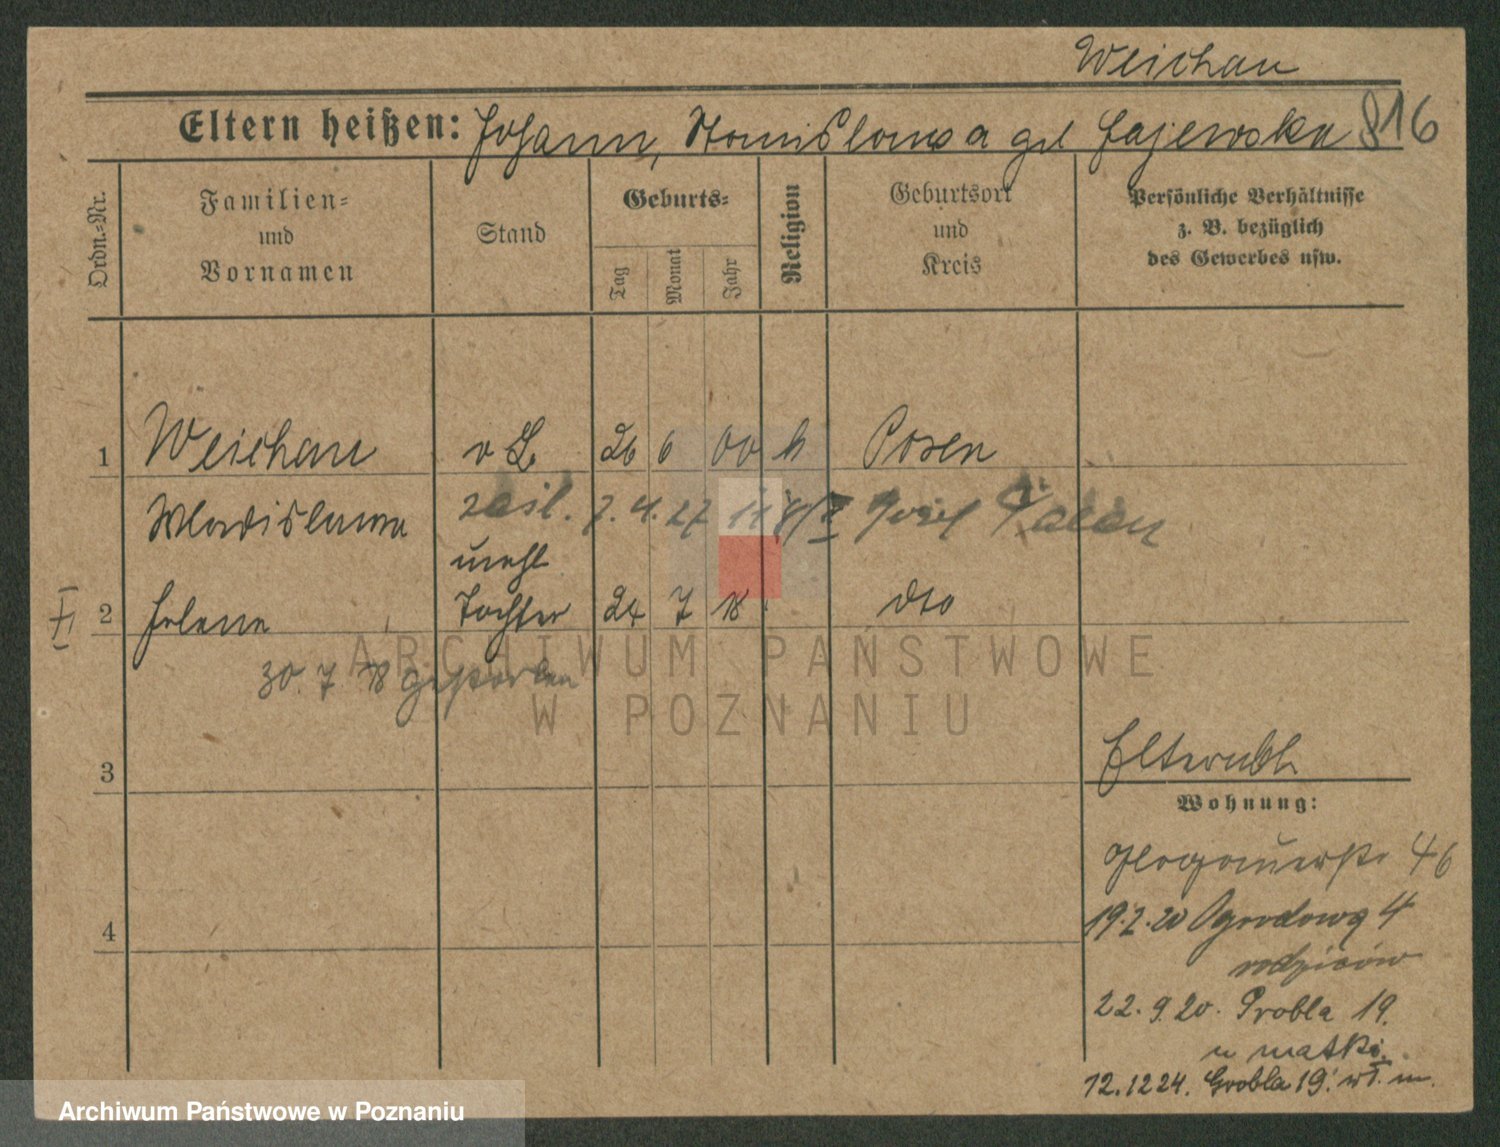 Weichau
Eltern heißen: Johann, Stanislawa Gajewska 816
Ordn.-Nr.
Familien=
und
Vornamen
Stand
Geburts=
Tag
Monat
Jahr
Religion
Geburtsort
und
Kreis
Persönliche Verhältnisse
z. B. bezüglich
des Gewerbes usw.
1 Weichau 26 6 00 k Posen
Wladislawa
zaśl. 7. 4. 27 Józef
unehl
2 Helene Tochter 24 7 18 dto
30. 7. 18 gestorben
3
Elternbh
Wohnung:
Glogauerstr 46
4
19.2.20 Ogrodowa 4
rodziców
22. 9. 20. Grobla 19.
u matki.
12.12 24. Grobla 19. wł. m.
ARCHIWUM PAŃSTWOWE
W POZNANIU
Archiwum Państwowe w Poznaniu